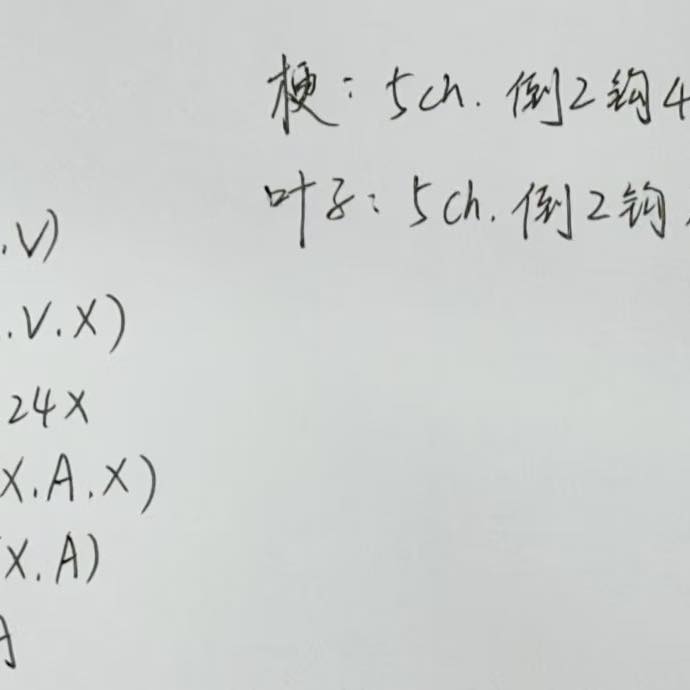 梗：5ch. 倒2钩4
叶子：5ch. 倒2钩
.V)
.V.X)
24X
X.A.X)
X.A)
A